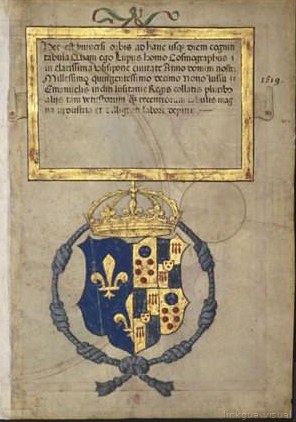 Hec est universi orbis ad hanc usqz diem cogniti
tabula quam ego Lupus homo Cosmographus
in clarissima Ulisipone civitate Anno domini nostri
Millessimo quingentessimo decimo nono jussu
Emanuelis incliti lusitanie Regis collatis pluribs
aliis tam vetustorum qz recentiorum tabulis mag
na industria et dilligenti labore depinxi
1519